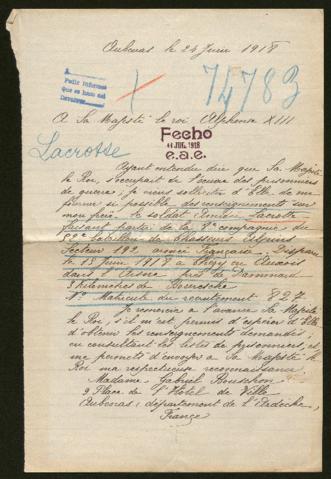 Aubenas le 24 Juin 1918
A
Pedir informes
74783
A Sa Majesté le roi Alphonse XIII
Fecho
11 JUL 1918
e.a.e.
Lacrosse
Ayant entendu dire que Sa Majesté
le Roi, s'occupait de l'œuvre des prisonniers
de guerre; je viens solliciter d'Elle de me
fournir si possible des renseignements sur
mon frère. le soldat Lacrotte
faisant partie de la compagnie du
52e bataillon de Chasseurs Alpins
Secteur 192 armée Française. Disparu
le 13 Juin 1918 à
dans l'Aisne près de Dammard
3 kilomètres de
No Matricule du recrutement 827.
Je remercie à l'avance Sa Majesté
le Roi, s'il m'est permis d'espérer d'Elle
d'obtenir les renseignements demandés
en consultant les listes de prisonniers, et
me permets d'envoyer à Sa Majesté le
Roi ma respectueuse reconnaissance.
Madame Gabriel
9 Place de l'Hôtel de Ville
Aubenas, département de l'Ardèche,
France